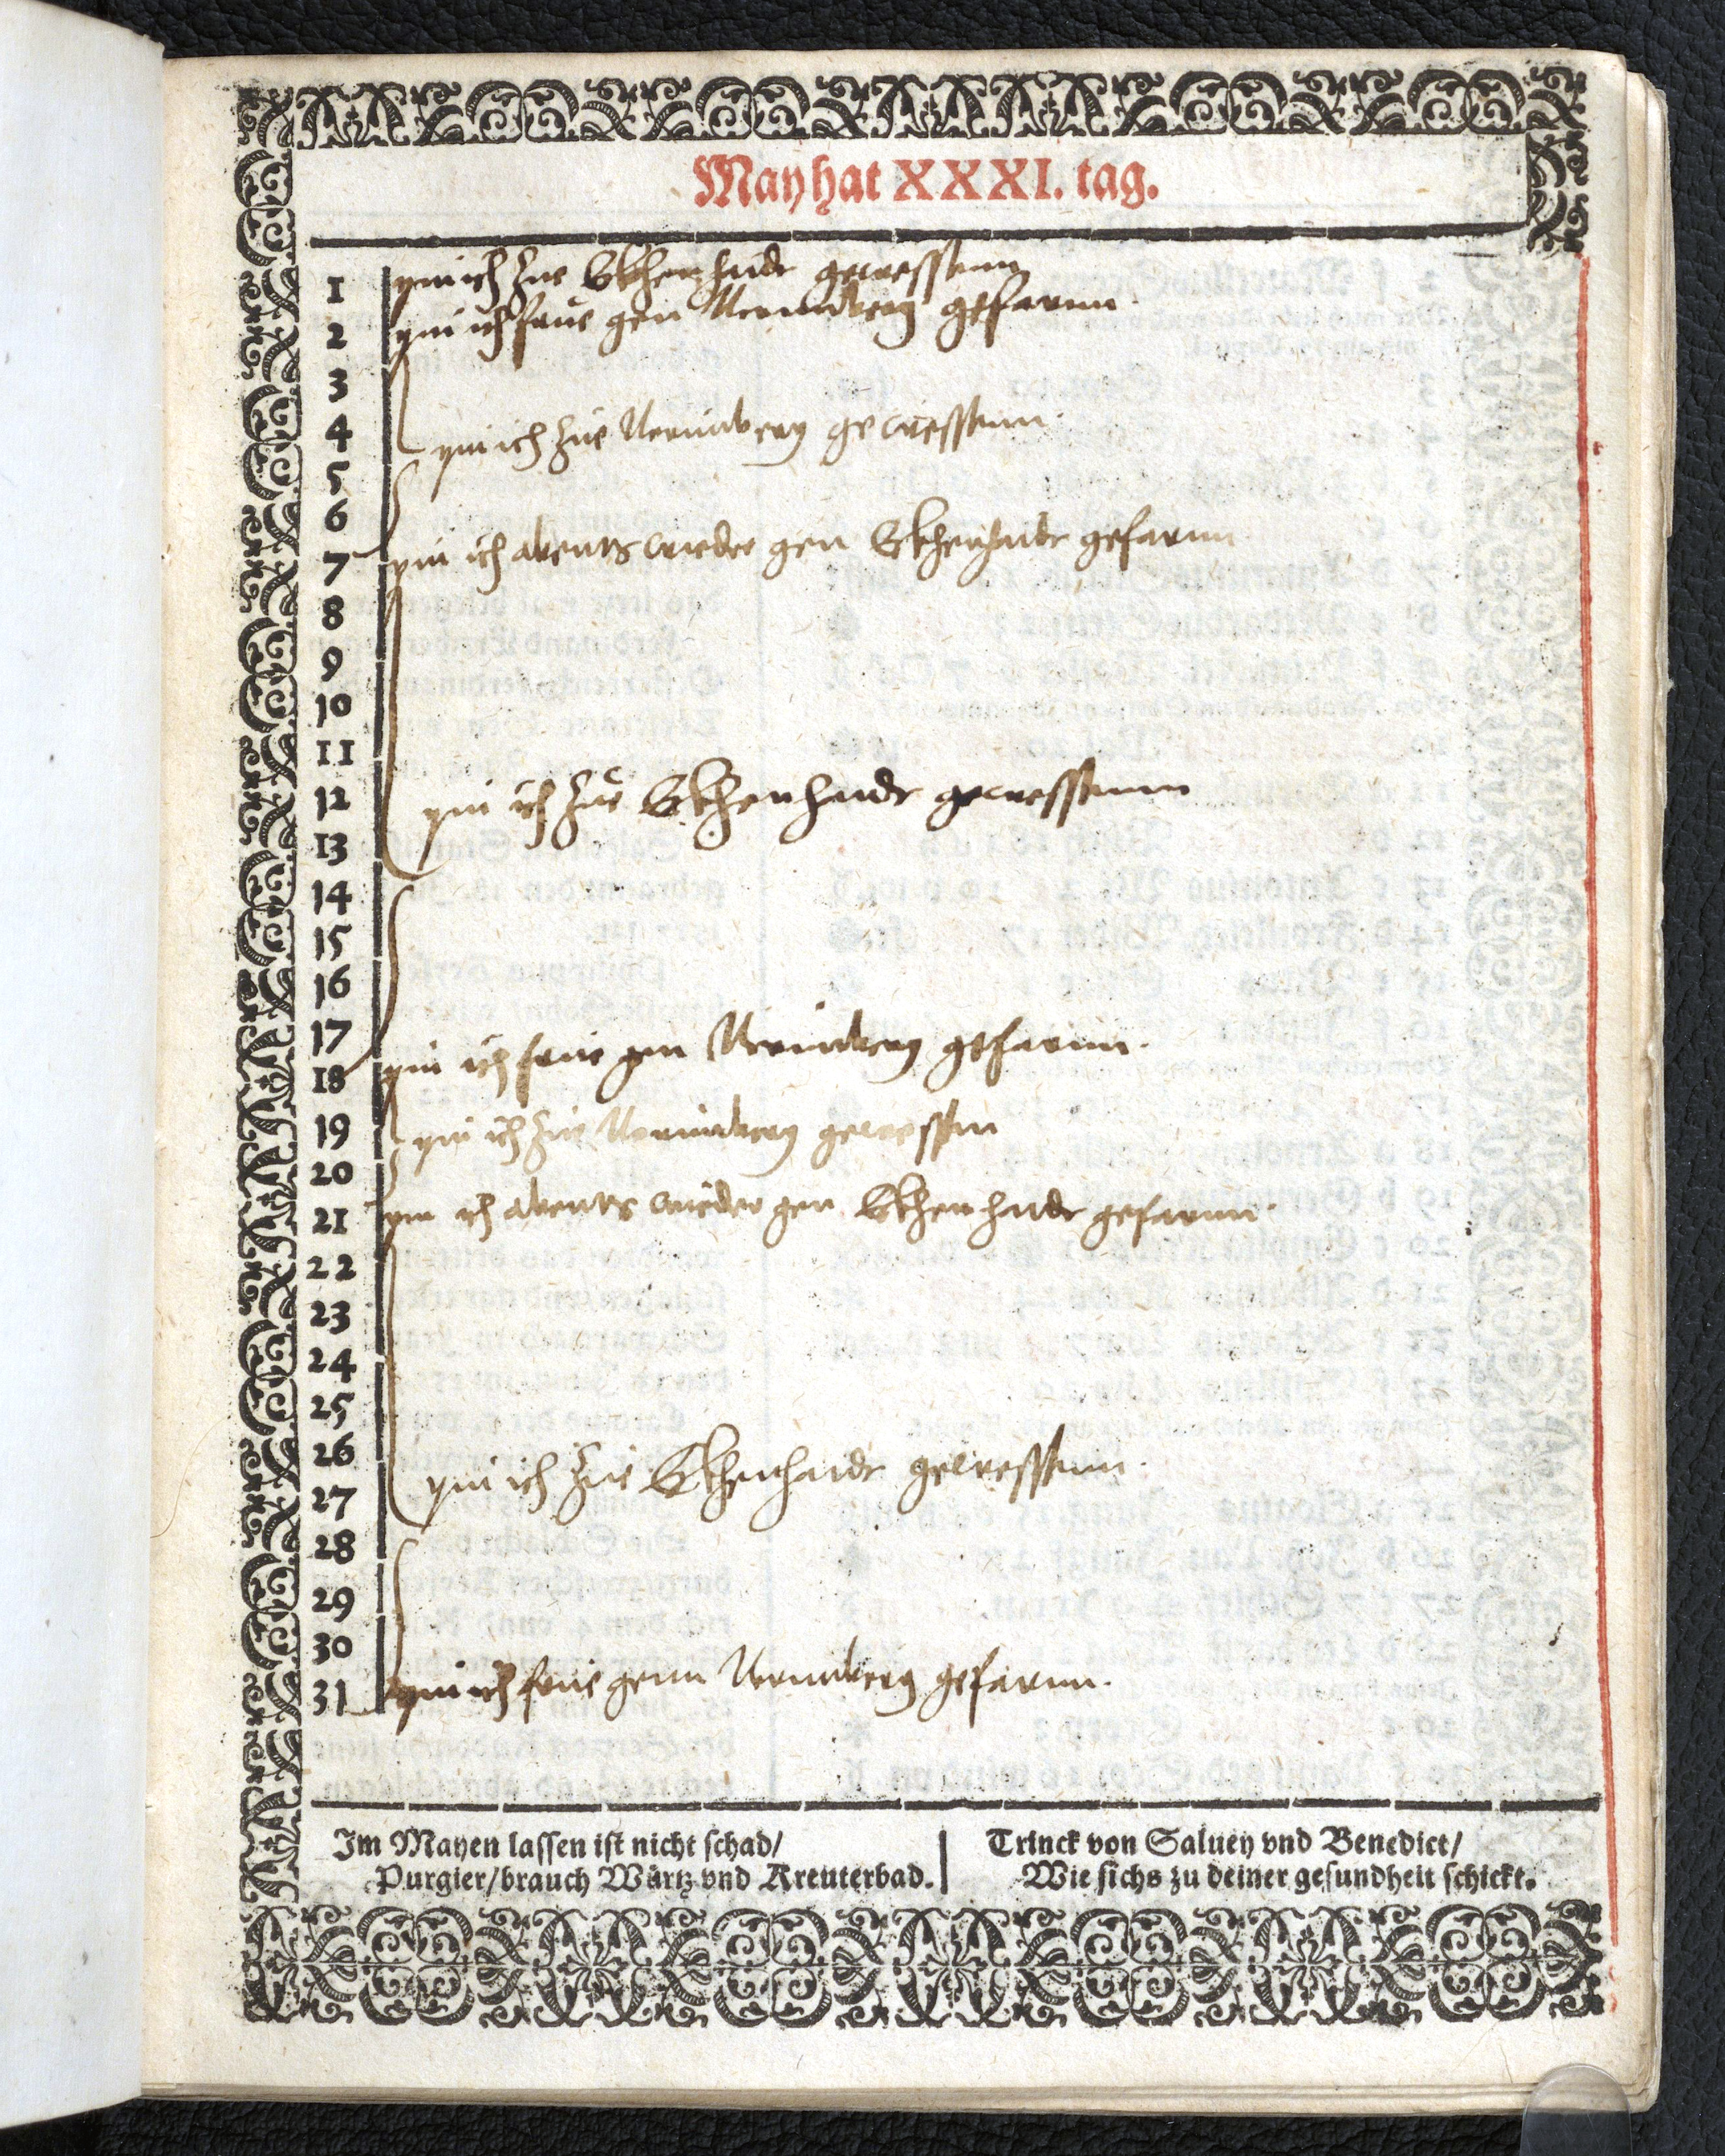 May hat XXXI. tag.
1 pin ich zue Eckhenhaidt gewessenn
2 pin ich frue gen Nernnberg gefarnn.
3
4 pin ich zue Nernnberg gewessenn.
5
6
7 pin ich abents wieder gen Eckhenhaidt gefarnn
8
9
10
11
12 pin ich zue Eckhenhaidt gewessenn
13
14
15
16
17
18 pin ich frue gen Nernnberg gefarnn.
19 pin ich zue Nernnberg gewessen
20
21 pin ich abents wieder gen Eckhenhaidt gefarnn.
22
23
24
25
26
27 pin ich zue Eckhenhaidt gewessenn.
28
29
30
31 pin ich frue genn Nernnberg gefarnn.
Im Mayen lassen ist nicht schad/
Purgier/brauch Würtz vnd Kreuterbad.
Trinck von Saluey vnd Benedict/
Wie sichs zu deiner gesundheit schickt.